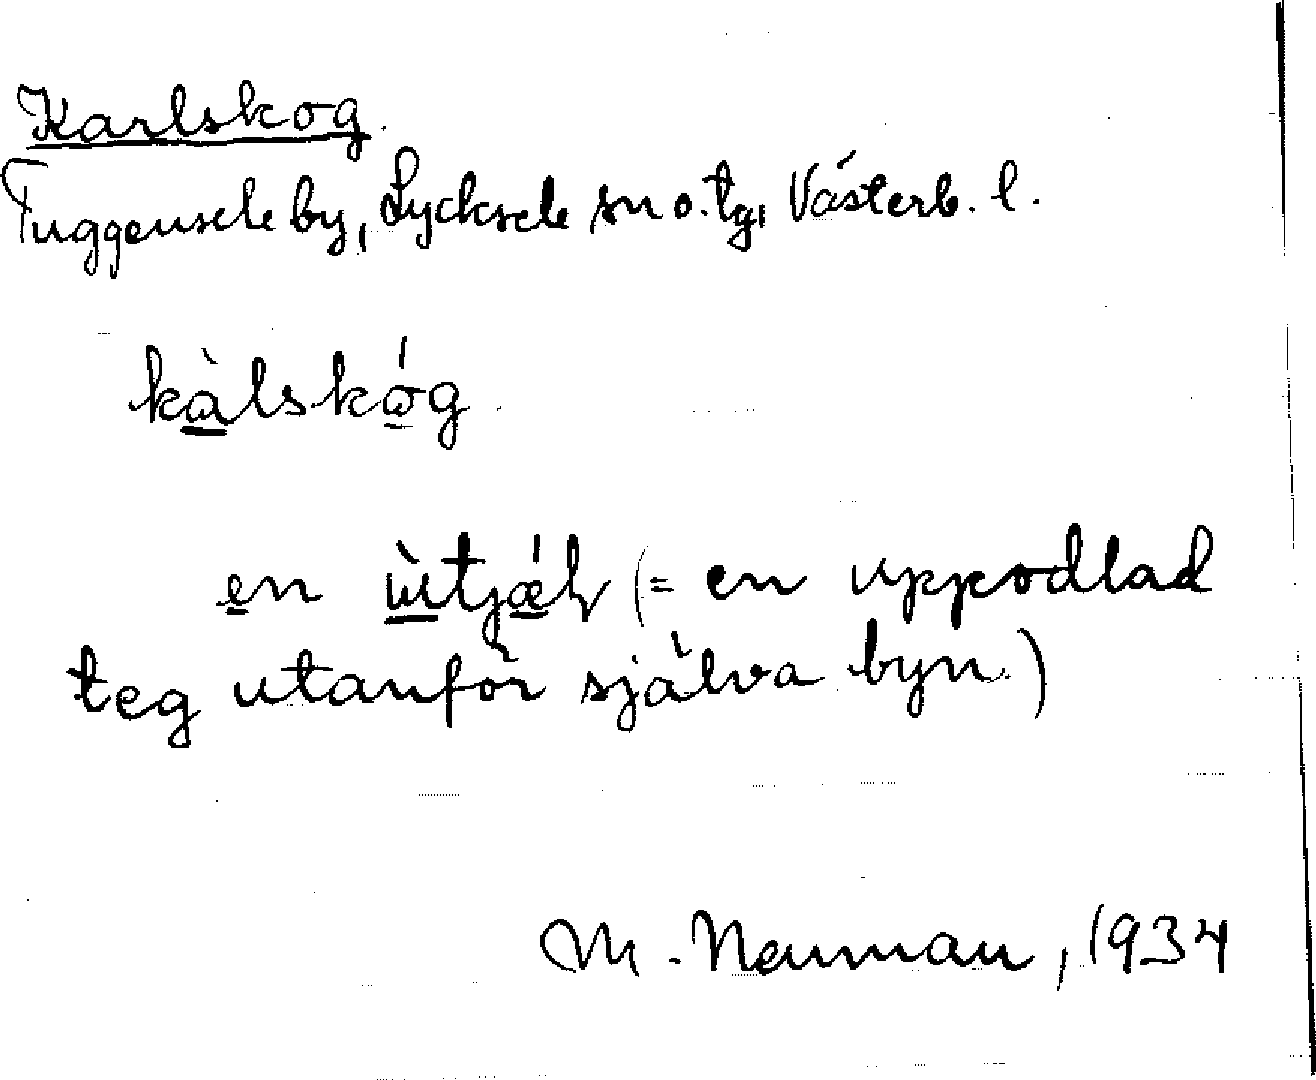 Karlskog.
Tuggensele by, Lycksele sn o. tg, Västerb. l.
kàlskóg.
en ùtjǽḷ (= en uppodlad
teg utanför själva byn.)
M. Neuman, 1934